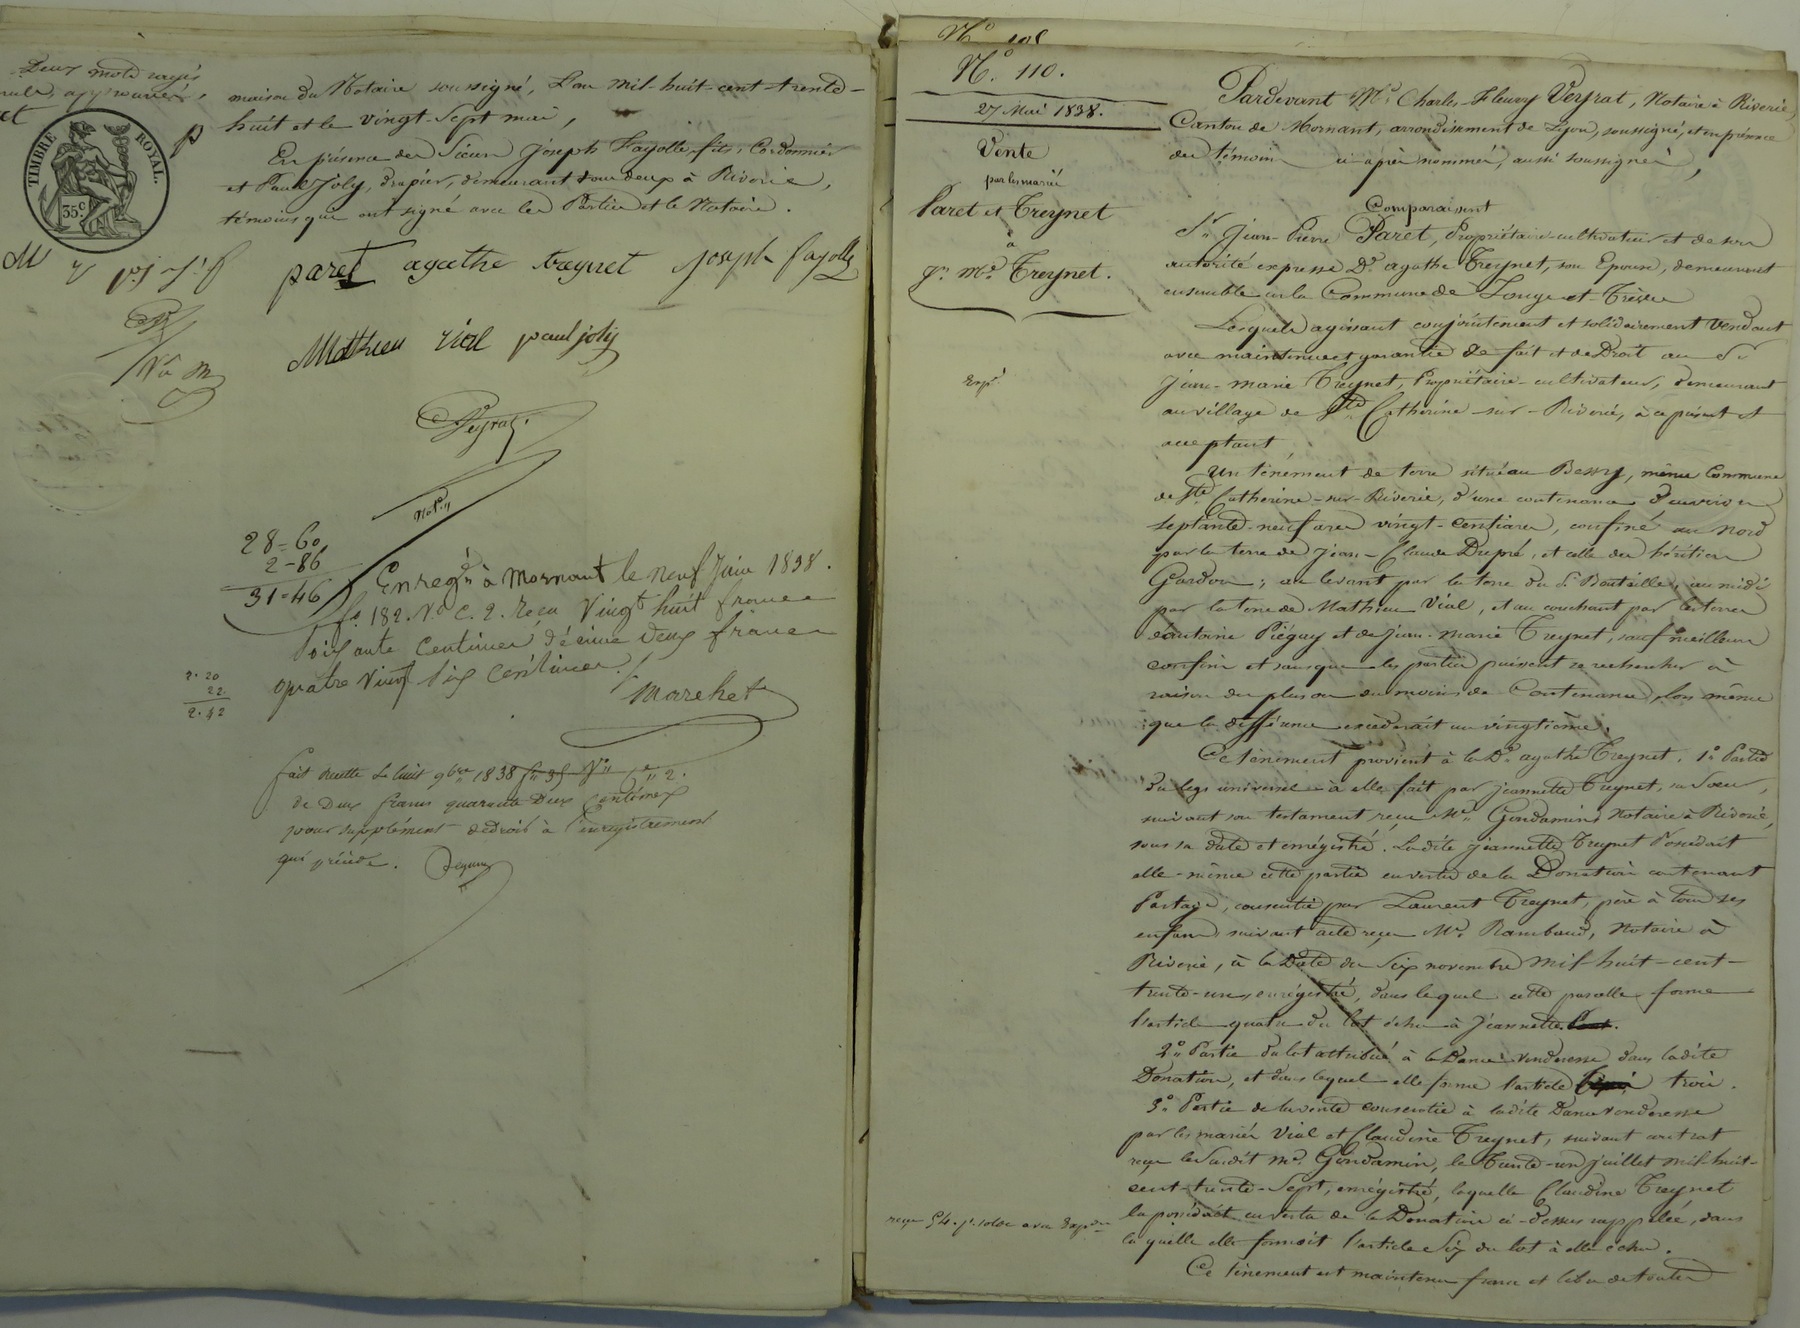 Deux mots rayés
nuls, approuvés,
et
TIMBRE ROYAL.
35 c
maison du Notaire soussigné, L'an mil-huit-cent-trente-
huit et le vingt-sept mai,
En présence des Sieurs Joseph Fayolle fils, Cordonnier
et Paul Joly, drapier, demeurant tous deux à Riverie,
témoins qui ont signé avec les Parties et le Notaire.
paret agathe treynet joseph fayolle
Mathieu vial paul joly
Veyrat
Not.
28=60
2-86
31=46
Enreg à Mornant le neuf Juin 1838.
fo. 182. Vo. C. 2. Reçu Vingt huit francs
soixante centimes décime deux francs
quatre vingt six centimes.
Marchet
2.20
22
2.42
fait recette Le huit 9bre 1838 fo 35 Vo Ce 2.
de Deux francs quarante Deux Centimes
pour supplément de droit à l'enregistrement
qui précède.
No 108
No. 110.
27 Mai 1838.
Vente
par les mariés
Paret et Treynet
à
Jn. Md. Treynet.
Expé
reçu 54. pr. solde avec Expon
Pardevant Me. Charles-Fleury Veyrat, Notaire à Riverie,
Canton de Mornant, arrondissement de Lyon, soussigné, et en présence
des témoins ci après nommés, aussi soussignés,
Comparaissent
Sr. Jean-Pierre Paret, Propriétaire-cultivateur et de son
autorité expresse De. agathe Treynet, son Epouse, demeurant
ensemble en la Commune de Longe-et-Trèves
Lesquels agissant conjointement et solidairement Vendent
avec maintenue et garantie de fait et de Droit au Sr
Jean-marie Treynet, Propriétaire-cultivateur, demeurant
au village de Ste Catherine-sur-Riverie, à ce présent et
acceptant
Un tènement de terre situé au Bessy, même Commune
de Ste Catherine-sur-Riverie, d'une contenance d'environ
septante-neuf ares vingt-centiares, confiné au Nord
par la terre de Jean-Claude Dupré, et celle des héritiers
Gardon; au levant par la terre du Sr Bouteille, au midi
par la terre de Mathieu Vial, et au couchant par les terres
d'antoine Piéguy et de Jean-Marie Treynet, sauf meilleurs
confins et sans que les parties puissent se rechercher à
raison du plus ou du moins de Contenance, lors même
que la différence excéderait un vingtième.
Ce tènement provient à la De. agathe Treynet. 1o. Partie
du legs universel à elle fait par Jeannette Treynet, sa Soeur,
suivant son testament reçu Me. Gondamin, Notaire à Riverie,
sous sa date et enrégistré. Ladite Jeannette Treynet Possédait
elle-même cette partie en vertu de la Donation contenant
Partage, consentie par Laurent Treynet, père à tous ses
enfans suivant acte reçu Me. Rambaud, Notaire à
Riverie, à la Date du Six novembre Mil-huit-cent-
trente-un, enrégistré, dans lequel cette parcelle forme
l'article quatre du lot échu à Jeannette
2o. Partie du lot attribué à la Dame venderesse dans ladite
Donation, et dans lequel elle forme l'article trois.
3o. Partie de la vente consentie à ladite Dame venderesse
par les mariés Vial et Claudine Treynet, suivant contrat
reçu le Susdit Me. Gondamin, le Trente-un juillet Mil-huit-
cent-trente-Sept, enrégistré, laquelle Claudine Treynet
la possédait en vertu de la Donation ci-dessus rappelée, dans
laquelle elle formoit l'article Six du lot à elle échu.
Ce tènement est maintenu franc et libre de toutes